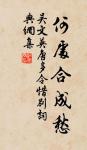 何處合成愁
吳文英唐多令惜別詞
典櫩集